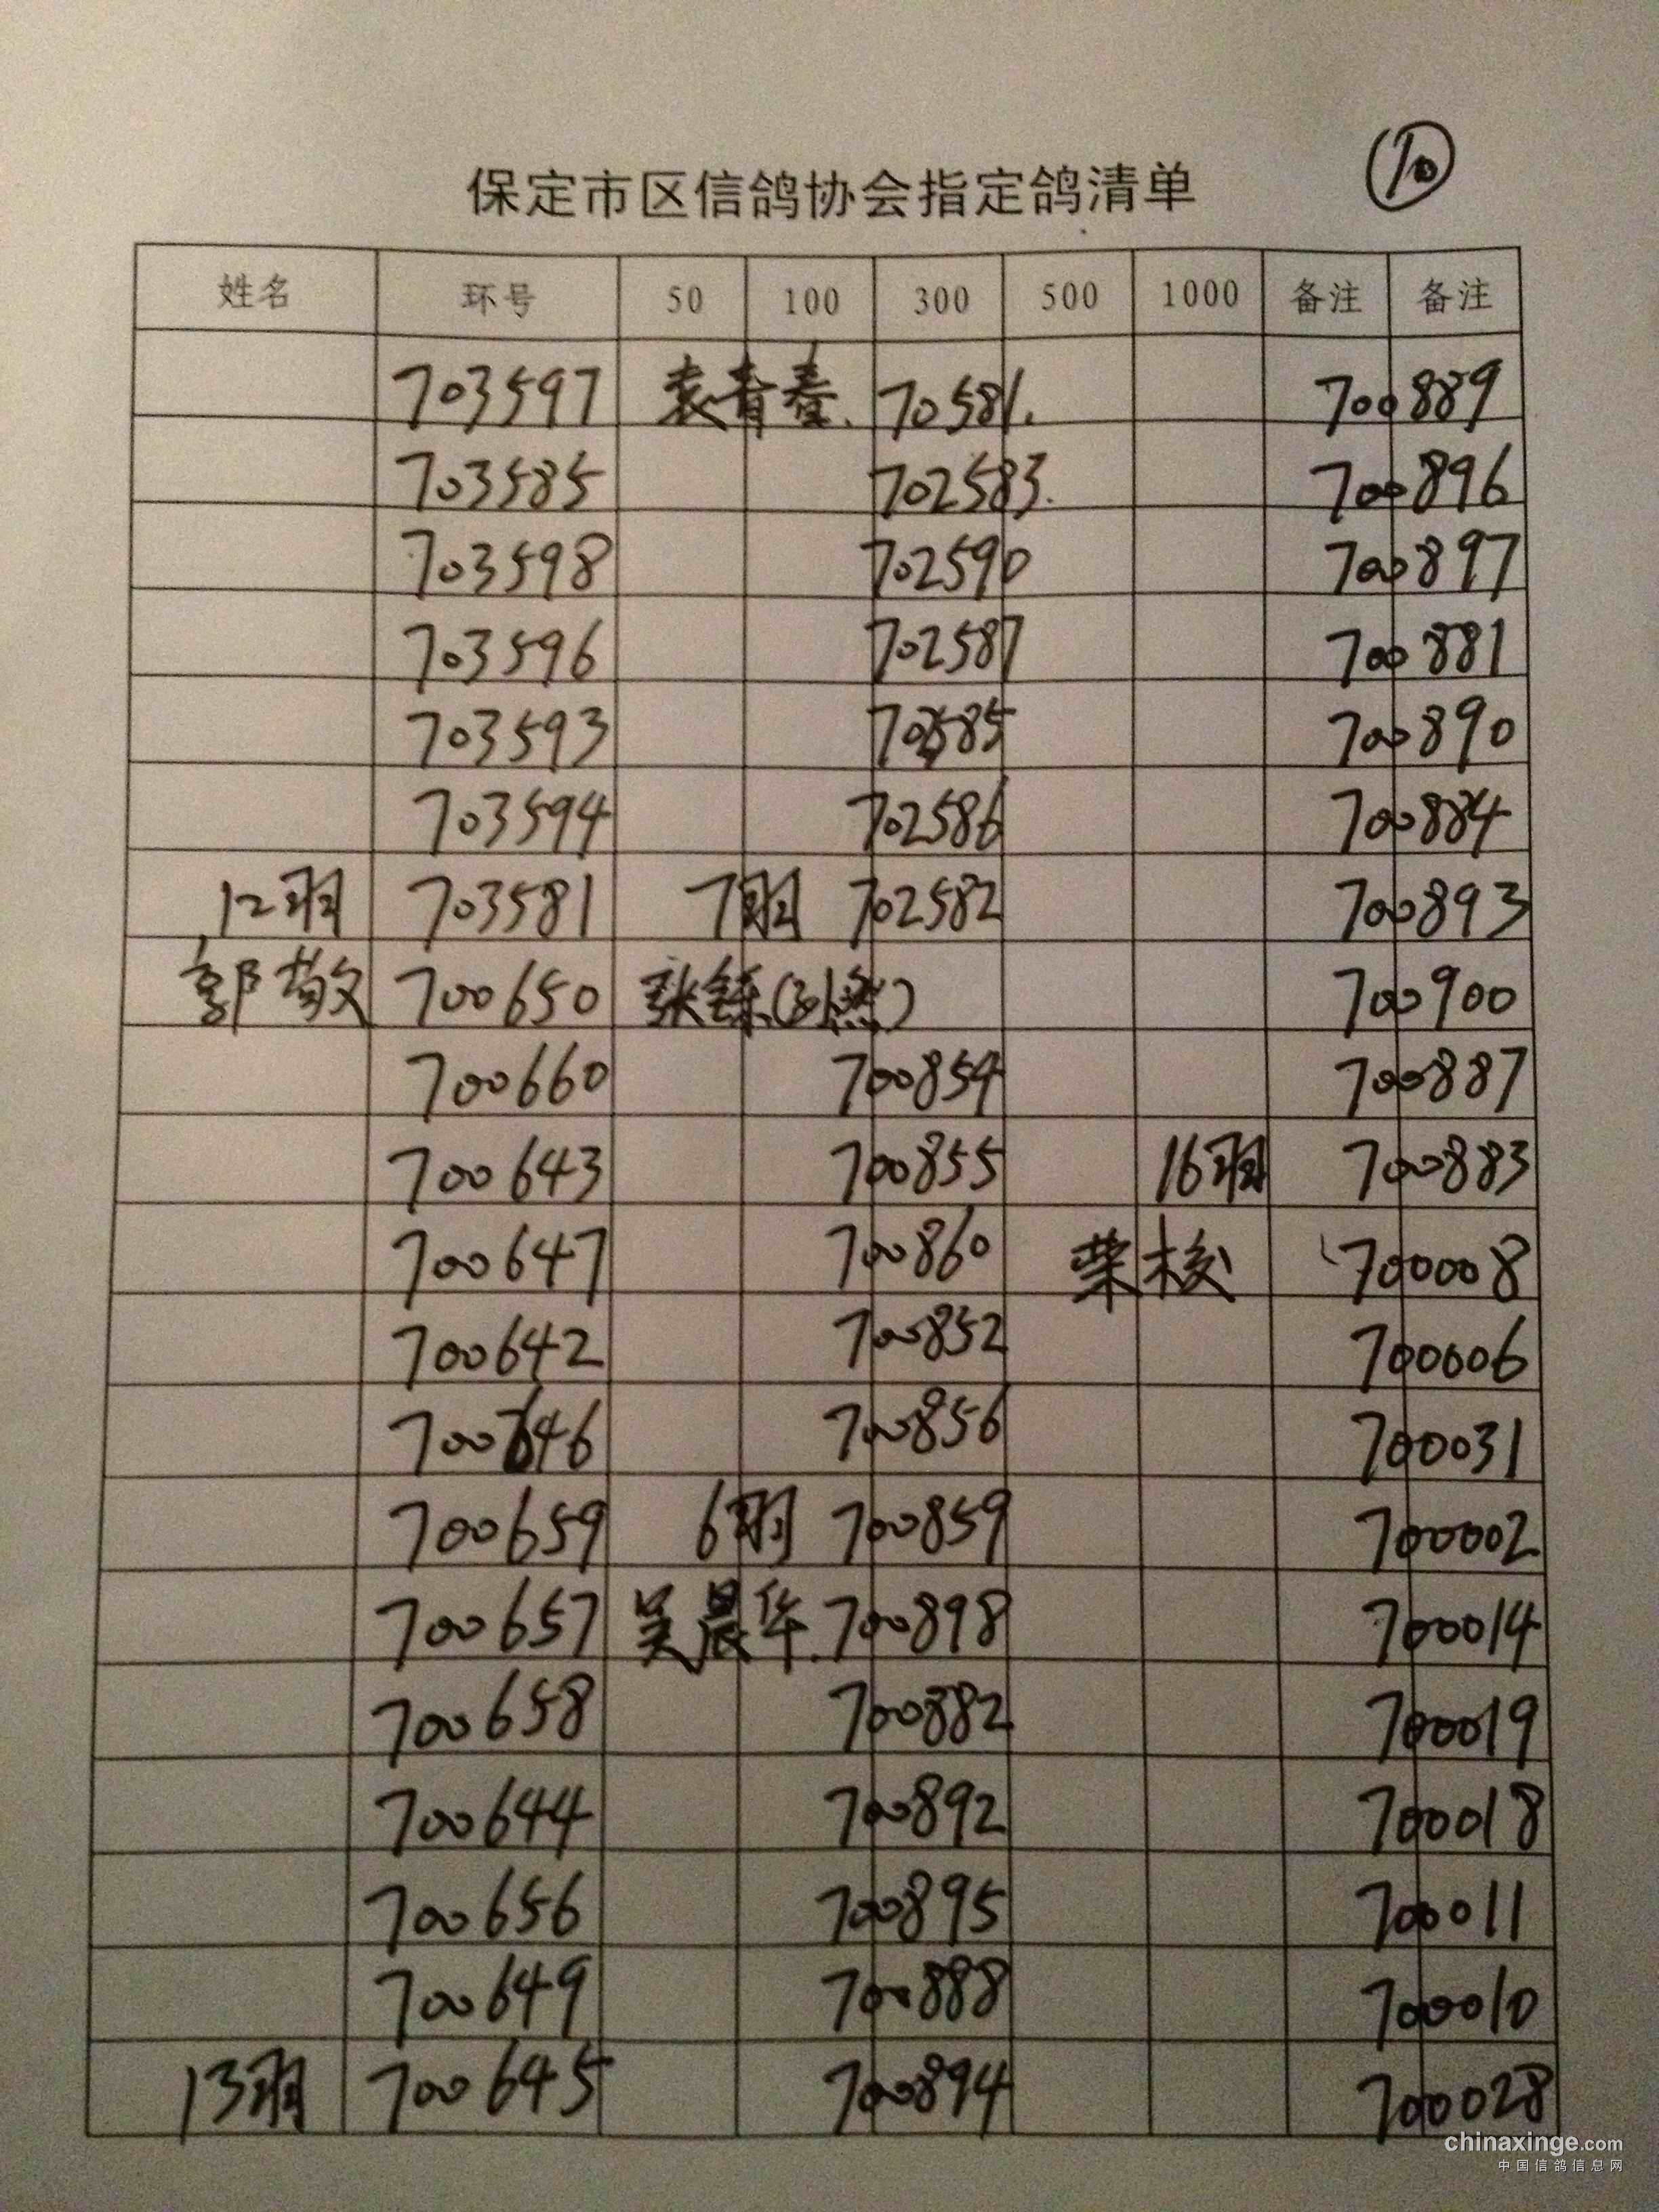 ⑩
保定市区信鸽协会指定鸽清单
姓名 环号 50 100 300 500 1000 备注 备注
703597 袁青春. 70581. 700889
703585 702583. 700896
703598 702590 700897
703596 702587 700881
703593 702585 700890
703594 702586 700884
12羽 703581 7羽 702582 700893
郭敬 700650 张铄( ) 700900
700660 700854 700887
700643 700855 16羽 700883
700647 700860 荣校 700008
700642 700852 700006
700646 700856 700031
700659 6羽 700859 700002
700657 吴晨华. 700898 700014
700658 700882 700019
700644 700892 700018
700656 700895 700011
700649 700888 700010
13羽 700645 700894 700028
chinaxinge.com
中国信鸽信息网